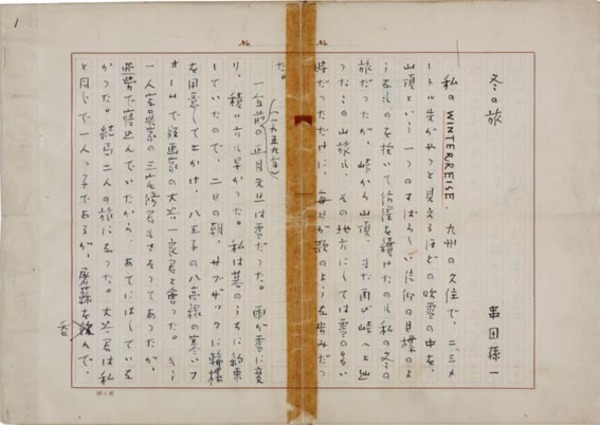 1
No.
No.
冬の旅
串田孫一
私の WINTERREISE. 九州の久住で、二、三メ
ートル先がやっと見えるほどの吹雪の中を、
山頂という一つのすばらしい信仰の目標のよ
うなものを抱いて彷徨を続けたのも私の冬の
旅だったが、峠から山頂、また再び峠へと辿
ったこの山旅も、その地方にしては雪の多い
だっただけに、毎日が歌のような歩みだっ
た。
(一九五九年)
一年前の正月元旦は雪だった。雨が雪に変
り、積り方も早かった。私は暮のうちに約束
していたので、二日の朝、サブザックに輪樏
を用意して出かけ、八王子の八高線の寒いフ
ォームで版画家の大谷一良君と会った。もう
一人写真家の三宅修君もさそってあったが、
で寝込んでいたから、あてにはしていな
かった。結局二人の旅になった。大谷君は私
と同じで一人っ子であるが、屠蘇を んで、
呑